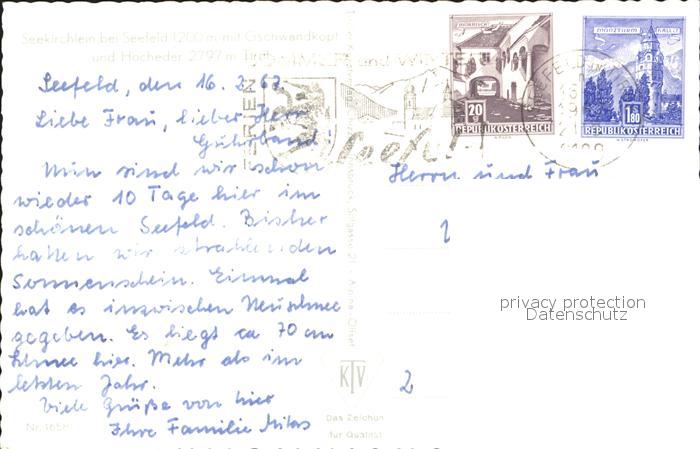 Seekirchlein bei Seefeld 1200 m mit Gschwandkopf
und Hocheder 2797 m Tirol
Seefeld, den 16. 2. 67
Liebe Frau, lieber Herr
Nun sind wir schon
wieder 10 Tage hier im
schönen Seefeld. Bisher
hatten wir strahlenden
Sonnenschein. Einmal
hat es inzwischen Neuschnee
gegeben. Es liegt ca 70 cm
Schnee hier. Mehr als im
letzten Jahr.
Viele Grüße von hier
Ihre Familie
FERIEN
SOMMER und WINTER
Seefeld
20 g
REPUBLIK ÖSTERREICH
MÜNZTURM HALL i.T.
1 S 80
REPUBLIK ÖSTERREICH
Herrn und Frau
1
2
privacy protection
Datenschutz
KTV
Das Zeichen
für Qualität